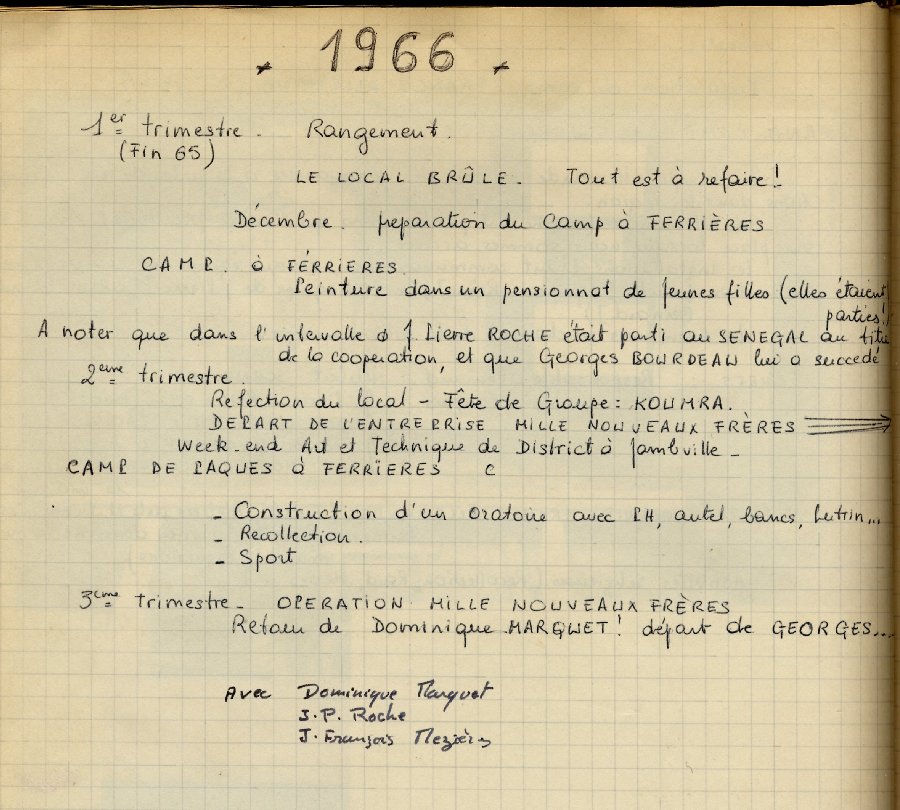 1966
1er trimestre. Rangement.
(Fin 65)
LE LOCAL BRÛLE. Tout est à refaire!
Décembre. preparation du Camp à FERRIÈRES
CAMP. à FÉRRIERES.
Peinture dans un pensionnat de Jeunes filles (elles étaient
parties!)
A noter que dans l'intervalle J. Pierre ROCHE était parti au SENEGAL au titre
de la cooperation, et que Georges BOURDEAU lui a succedé
2eme trimestre.
Refection du local - Fête de Groupe: KOUMRA.
DEPART DE L'ENTREPRISE MILLE NOUVEAUX FRÈRES
Week-end Art et Technique de District à Jambville -
CAMP DE PAQUES à FERRIERES C
- Construction d'un oratoire avec PH, autel, bancs, Lutrin...
- Recollection.
- Sport
3eme trimestre - OPERATION MILLE NOUVEAUX FRÈRES
Retour de Dominique MARQUET! départ de GEORGES...
Avec Dominique Marquet
J.P. Roche
J. François Mezières